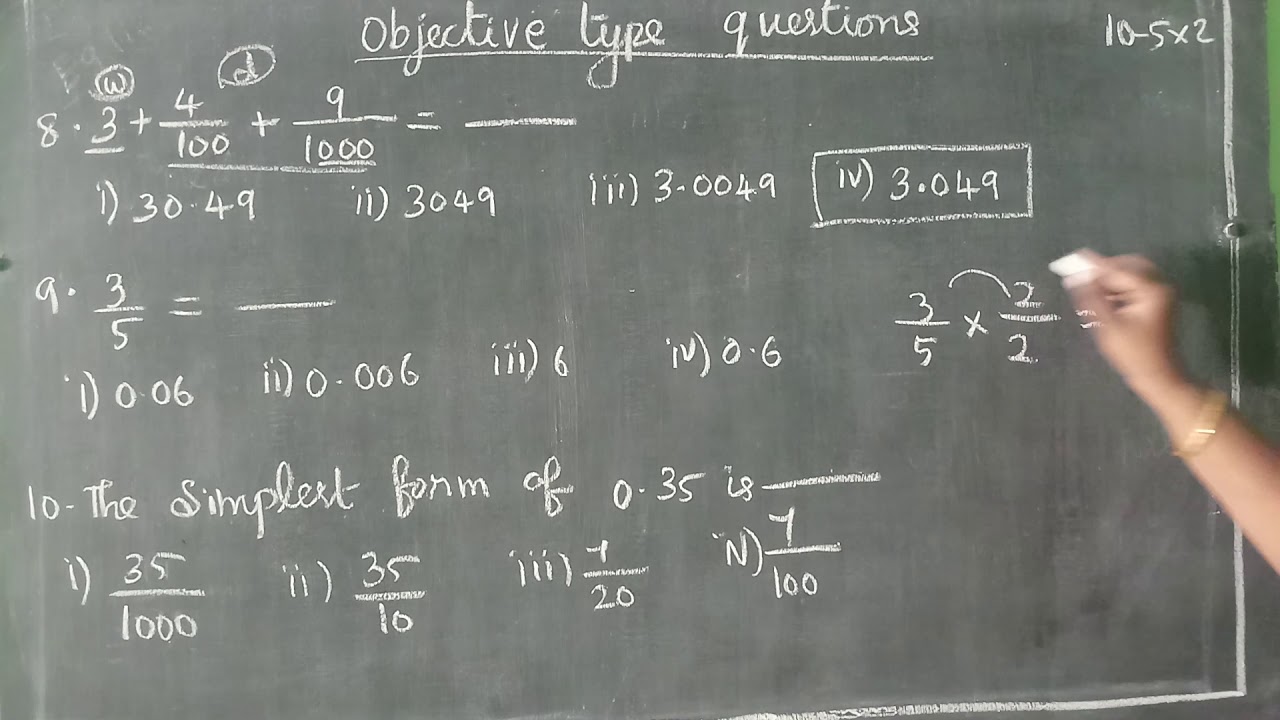 Objective type questions
10-5x2
(w) (d)
8. 3 + 4/100 + 9/1000 = ____
i) 30.49 ii) 3049 iii) 3.0049 iv) 3.049
9. 3/5 = ____
3/5 x 2/2 =
i) 0.06 ii) 0.006 iii) 6 iv) 0.6
10. The Simplest form of 0.35 is ____
i) 35/1000 ii) 35/10 iii) 7/20 iv) 7/100